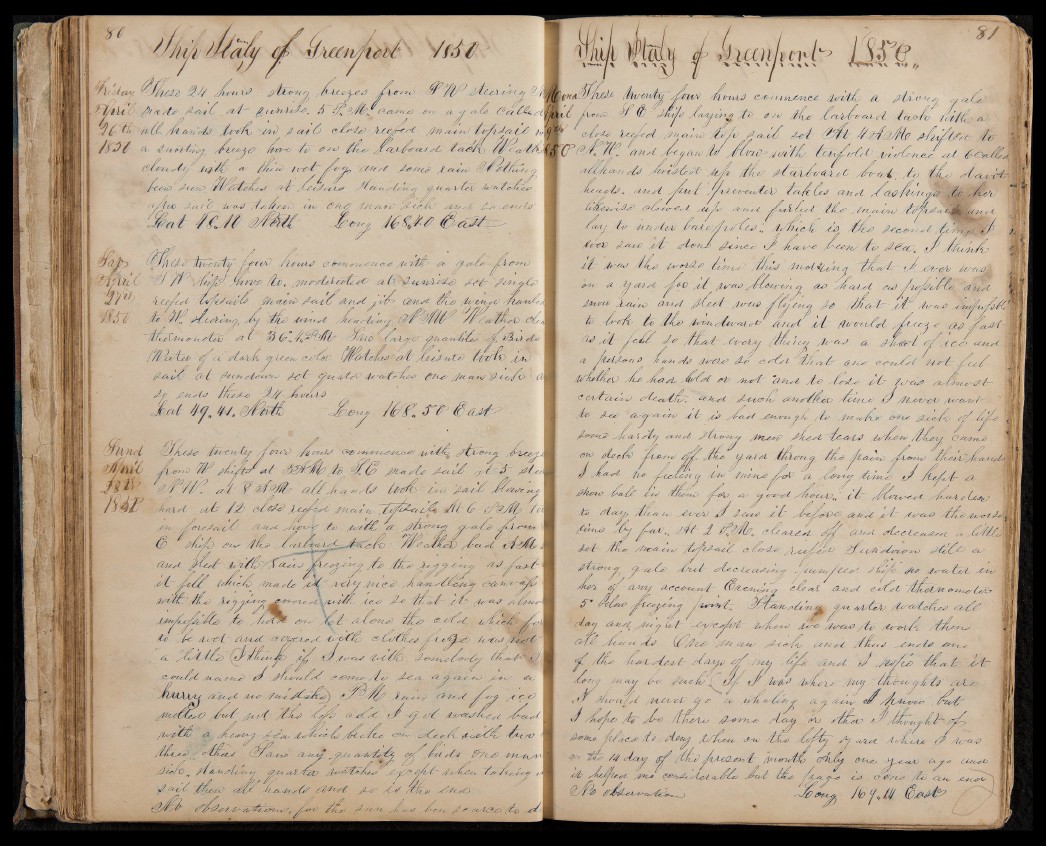 80
Ship Italy of Greenport 1850
Friday These 24 hours strong breezes from SW steering
April made sail at sunrise. 5 P.M. came on a gale called
26th all hands took in sail close reefed main topsail
1850 a snorting breeze hove to on the larboard tack Weather
cloudy with a thin wet fog and some rain Nothing
been seen Watches at leisure standing quarter watches
after sail was taken in one man sick and so ends
Lat 48.10 North Long 168.40 East
Sat These twenty four hours commence with a gale from
April SW ship hove to. moderated at sunrise set single
27th reefed topsails main sail and jib and the wind hauled
1850 to W. steering by the wind heading NNW Weather clear
thermometer at 36. P.M. Saw large quantities of Birds
Water of a dark green color Watches at leisure took in
sail at sundown set quarter watches one man sick
so ends these 24 hours
Lat 49.41. North Long 168.50 East
Sund These twenty four hours commence with strong breeze
April from W shifted at 3 AM to S.E made sail at 5
28th NW. at 8 AM all hands took in sail blowing
1850 hard at 12 close reefed main topsail at 6 P.M.
in foresail and hove to with a strong gale from
E ship on the larboard tack. Weather bad
and sleet with rain freezing to the rigging as fast
it fell which made it very nice handling canvass
with the rigging covered with ice so that it was almost
impossible to hold on let alone the cold which
to be wet and covered with clothes froze was not
a little I think if I was with somebody that I
could name I should come to sea again in a
hurry and no mistake P.M. rain and fog ice
melted but not the less cold I got washed
with a heavy sea which broke on deck with two
three others Saw any quantity of birds one man
sick. standing quarter watches except when taking
sail then all hands and so is the end
No observation, for the sun has been scarce to
81
Ship Italy of Greenport 1850
Mond These twenty four hours commence with a strong gale
April from S E ship laying to on the larboard tack with a
29th close reefed main top sail set At 4 A M shifted to
1850 N.W. and began to blow with tenfold violence at 6 called
all hands hoisted up the starboard boat to the davit
heads. and put preventer tackles and lashings to her
likewise clewed up and furled the main topsail and
lay to under bare poles. which is the second time I
ever saw it done since I have been to sea. I think
it was the worse time this morning that I ever was
on a yard for it was blowing as hard as possible and
snow rain and sleet was flying so that it was impossible
to look to the windward and it would freeze as fast
as it fell so that every thing was a sheet of ice and
a persons hands were so cold that one could not feel
whether he had hold or not and to lose it was almost
certain death. and such another time I never want
to see again it is bad enough to make one sick of life
some hardy and strong men shed tears when they came
on deck from off the yard through the pain from their hands
I had no feeling in mine for a long time I kept a
snow ball in them for a good hour. it blowed harder
to day than ever I saw it before and it was the worse
time by far. At 2 P.M. cleared off and decreased a little
set the main topsail close reefed Sundown still a
strong gale but decreasing pumped ship no water in
her of any account Evening clear and cold thermometer
5° below freezing point. Standing quarter watches all
day and night except when we was to work then
all hands One man sick and thus ends one
of the hardest days of my life and I hope that it
long may be such If I was where my thoughts are
I should never go a whaling again I know but
I hope to be there some day or other I thought of
some place to day when on the lofty yard where I was
on the 14 day of the present month only one year ago and
it helped me considerable but the page is come to an end
No observation Long 169.14 East